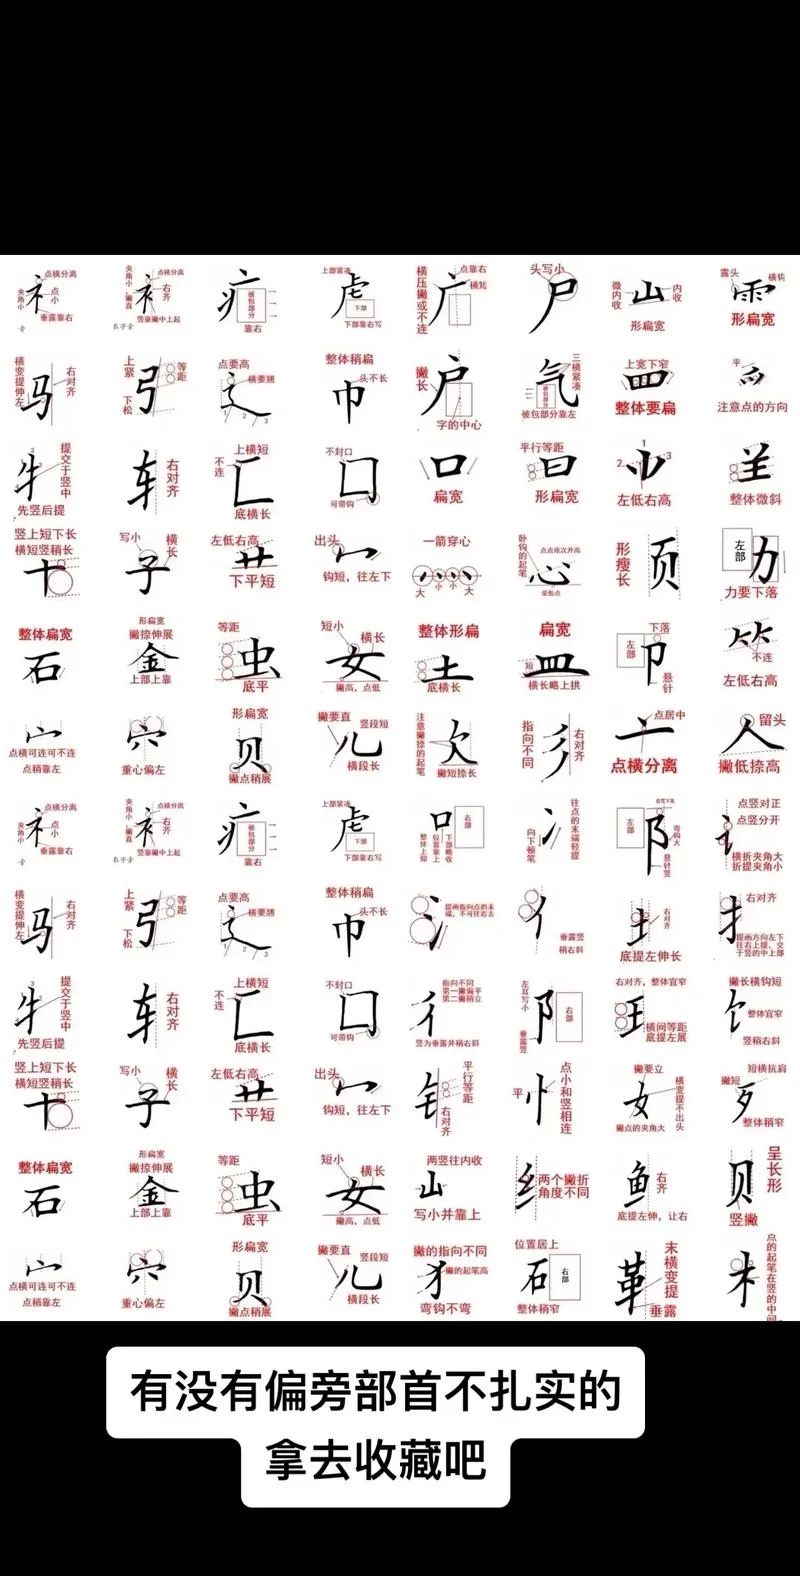 点横分离
夹角小
点小
垂露靠右
旁
夹角小
撇直
点横分离
右齐
竖靠撇中上起
衣字旁
疒
被包部分
靠右
上部紧凑
下部
下部靠右写
横压撇或不连
广
点靠右
横短
头写小
尸
微内收
山
内收
形扁宽
露头
横钩
形扁宽
横变提伸左
马
右对齐
上紧
下松
弓
等距
点要高
横要翘
1 2 3
整体稍扁
巾
头不长
撇长
户
字的中心
气
三横紧凑
被包部分
被包部分靠左
上宽下窄
罒
整体要扁
平
爫
注意点的方向
牜
提交于竖中
先竖后提
车
右对齐
上横短
不连
匚
底横长
不封口
冂
可带钩
口
扁宽
平行等距
日
形扁宽
1
2
3
左低右高
整体微斜
竖上短下长
横短竖稍长
十
写小
横长
子
左低右高
艹
下平短
出头
冖
钩短，往左下
一箭穿心
灬
大 小 小 大
卧钩的起笔
点点依次升高
心
最低点
形瘦长
页
左部
力
力要下落
整体扁宽
石
形扁宽
撇捺伸展
金
上部上靠
等距
虫
底平
短小
横长
女
撇高，点低
整体形扁
土
底横长
扁宽
短
皿
横长略上拱
左部
下落
卩
悬针
不连
左低右高
宀
点横可连可不连
点稍靠左
穴
重心偏左
形扁宽
贝
撇点稍展
撇要直
竖段短
儿
横段长
注意撇捺的起笔
欠
撇短捺长
指向不同
彡
右对齐
点居中
亠
点横分离
留头
人
撇低捺高
点横分离
夹角小
点小
垂露靠右
旁
夹角小
撇直
点横分离
右齐
竖靠撇中上起
衣字旁
疒
被包部分
靠右
上部紧凑
下部
下部靠右写
口
右部
整体上仰
位置靠上
下部略收
冫
往点的末端轻提
向下顿笔
左部
阝
弯钩大
悬针竖
讠
点竖对正
点竖分开
横折夹角大
折提夹角小
横变提伸左
马
右对齐
上紧
下松
弓
等距
点要高
横要翘
1 2 3
整体稍扁
巾
头不长
氵
提画指向点的末
端，不可往右去
亻
垂露竖
稍右斜
右对齐
底提左伸长
扌
右对齐
提画方向左下
往右上提，交
于竖的中上部
牜
提交于竖中
先竖后提
车
右对齐
上横短
不连
匚
底横长
不封口
冂
可带钩
彳
指向不同
第一撇偏平
第二撇稍立
竖为垂露并稍右斜
左耳写小
阝
右部
垂露竖
右对齐，整体宜窄
王
横间等距
底提左展
撇长横钩短
饣
整体宜窄
竖稍右斜
竖上短下长
横短竖稍长
十
写小
横长
子
左低右高
艹
下平短
出头
冖
钩短，往左下
钅
平行等距
右对齐
平
忄
点小和竖相连
撇要立
女
横变提不出头
撇点的夹角大
短横抗肩
撇短
歹
整体稍窄
整体扁宽
石
形扁宽
撇捺伸展
金
上部上靠
等距
虫
底平
短小
横长
女
撇高，点低
两竖往内收
山
写小并靠上
纟
两个撇折
角度不同
鱼
右齐
底提左伸，让右
贝
呈长形
竖撇
宀
点横可连可不连
点稍靠左
穴
重心偏左
形扁宽
贝
撇点稍展
撇要直
竖段短
儿
横段长
撇的指向不同
犭
撇的起笔高
弯钩不弯
位置居上
石
右部
整体稍窄
革
末横变提
垂露
木
点的起笔在竖的中间
有没有偏旁部首不扎实的
拿去收藏吧